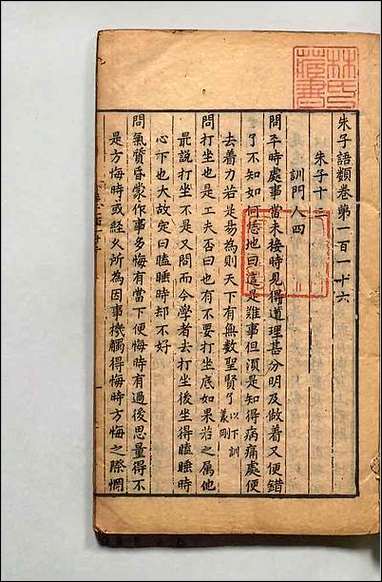 林氏藏書
朱子語類卷第一百一十六
朱子十三
訓門人四
問平時處事當未接時見得道理甚分明及做着又便錯
了不知如何恁地曰這是難事但須是知得病痛處便
去着力若是易爲則天下有無數聖賢了以下訓義剛
問打坐也是工夫否曰也有不要打坐底如果老之屬他
最說打坐不是又問而今學者去打坐後坐得瞌睡時
心下也大故定曰瞌睡時却不好
問氣質昏蒙作事多悔有當下便悔時有過後思量得不
是方悔時或經久所爲因事機觸得悔時方悔之際惘